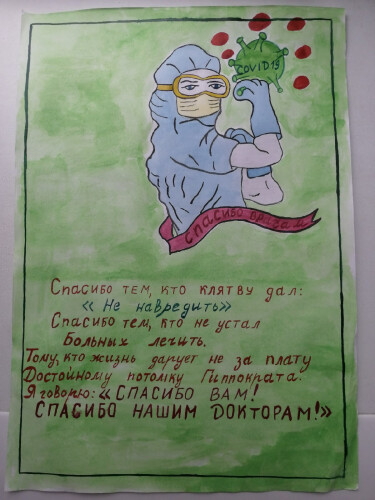 COVID19
СПАСИБО ВРАЧАМ
Спасибо тем, кто клятву дал:
« Не навредить»
Спасибо тем, кто не устал
Больных лечить.
Тому, кто жизнь дарует не за плату
Достойному потомку Гиппократа.
Я говорю: «СПАСИБО ВАМ!
СПАСИБО НАШИМ ДОКТОРАМ!»